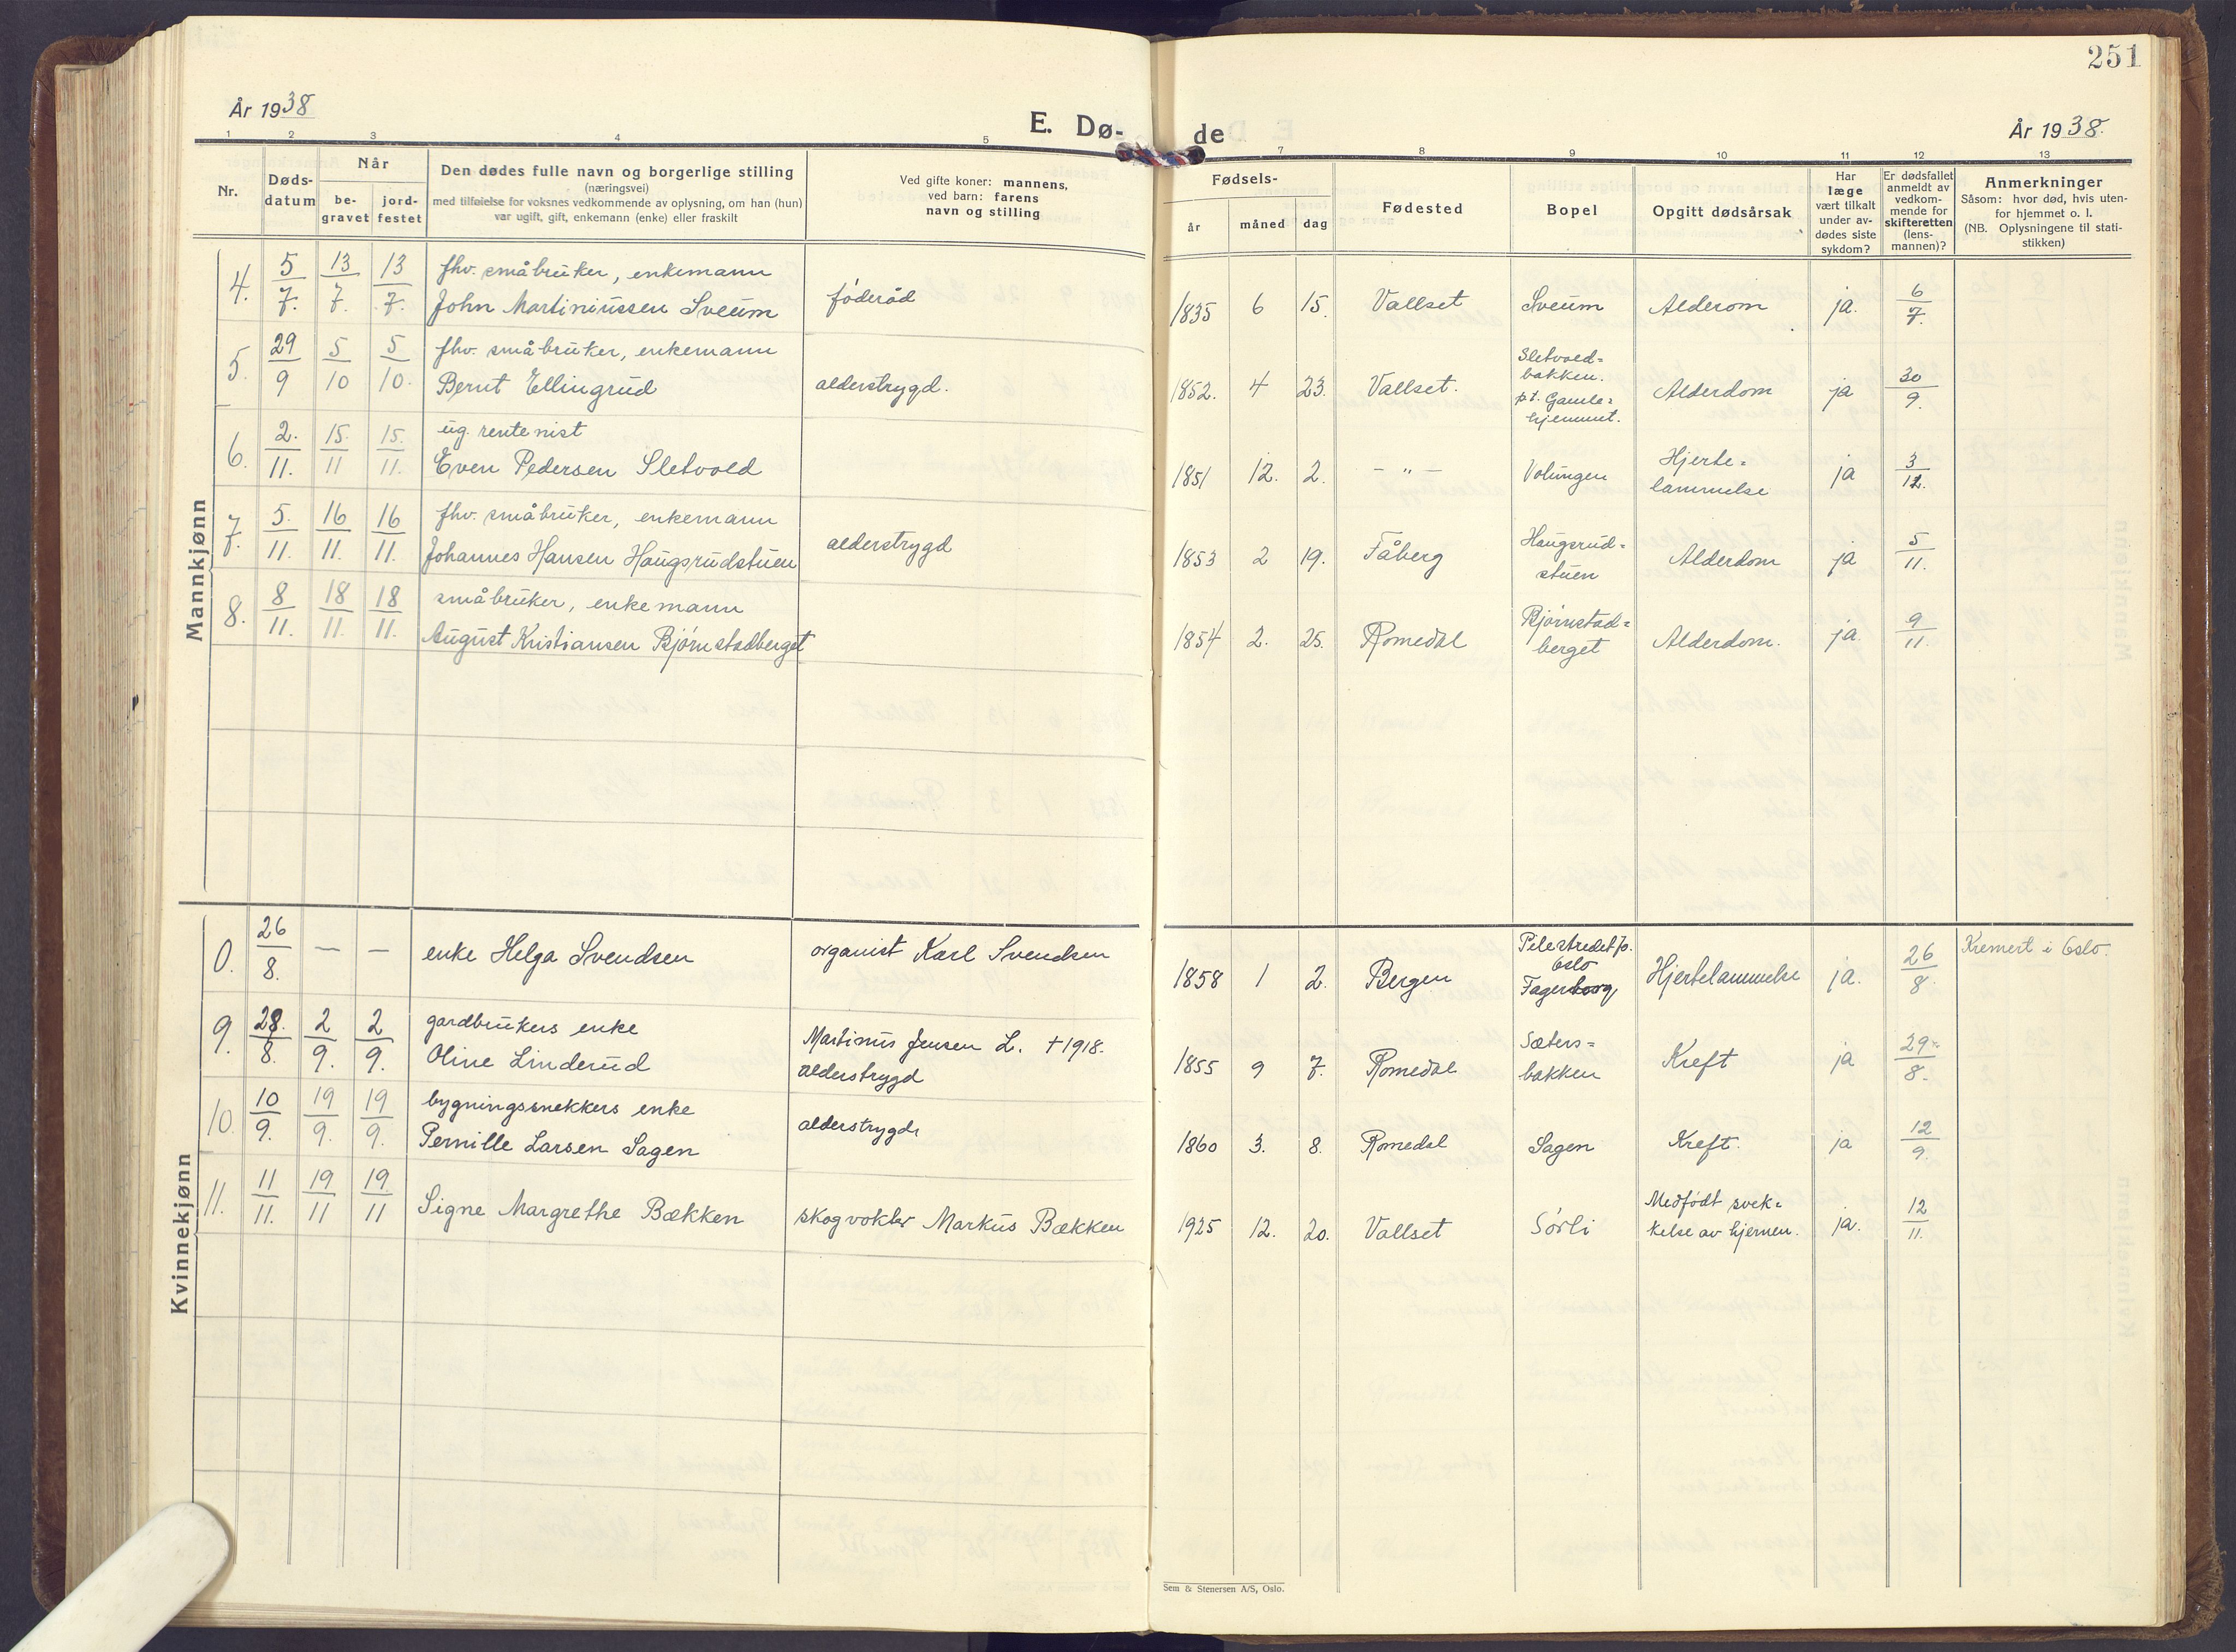 251
År 1938
E. Dø-
de
År 1938.
1 2 3 4 5 7 8 9 10 11 12 13
Nr.
Døds-
datum
Når
be-
gravet
jord-
festet
Den dødes fulle navn og borgerlige stilling
(næringsvei)
med tilføielse for voksnes vedkommende av oplysning, om han (hun)
var ugift, gift, enkemann (enke) eller fraskilt
Ved gifte koner: mannens,
ved barn: farens
navn og stilling
Fødsels-
år måned dag
Fødested
Bopel
Opgitt dødsårsak
Har
læge
vært tilkalt
under av-
dødes siste
sykdom?
Er dødsfallet
anmeldt av
vedkom-
mende for
skifteretten
(lens-
mannen)?
Anmerkninger
Såsom: hvor død, hvis uten-
for hjemmet o. l.
(NB. Oplysningene til stati-
stikken)
Mannkjønn
4. 5/7. 13/7. 13/7. fhv. småbruker, enkemann
John Martiniussen Sveum
føderåd
1835 6 15. Vallset Sveum Alderom ja. 6/7.
5. 29/9 5/10 5/10. fhv. småbruker, enkemann
Bernt Ellingrud
alderstrygd.
1852. 4 23. Vallset.
Sletvold=
bakken.
p.t. Gamle=
hjemmet.
Alderdom ja 30/9.
6. 2./11. 15./11 15./11. ug. rentenist
Even Pedersen Sletvold
1851 12. 2. – " – Volungen
Hjerte=
lammelse
ja 3/12.
7. 5./11. 16/11. 16/11. fhv. småbruker, enkemann
Johannes Hansen Haugsrudstuen
alderstrygd
1853 2 19. Fåberg
Haugsrud=
stuen
Alderdom ja 5/11.
8. 8/11. 18/11. 18/11. småbruker, enkemann
August Kristiansen Bjørnstadberget
1854 2. 25. Romedal
Bjørnstad=
berget
Alderdom. ja. 9/11.
Kvinnekjønn
0. 26/8. — — enke Helga Svendsen
organist Karl Svendsen
1858 1 2. Bergen
Oslo
Fagerborg
Hjertelammelse ja. 26/8.
Kremert i Oslo.
9. 28./8. 2/9. 2/9. gardbrukers enke
Oline Linderud
Martinus Jensen L. †1918.
alderstrygd
1855 9 7. Romedal
Sæters=
bakken
Kreft ja 29./8.
10. 10/9. 19/9. 19/9. bygningssnekkers enke
Pernille Larsen Sagen
alderstrygd.
1860 3. 8. Romedal Sagen Kreft. ja 12/9.
11. 11/11. 19/11 19./11 Signe Margrethe Bækken
skogvokter Markus Bækken
1925 12. 20. Vallset Sørli
Medfødt svek=
kelse av hjernen.
ja. 12/11.
Sem & Stenersen A/S, Oslo.